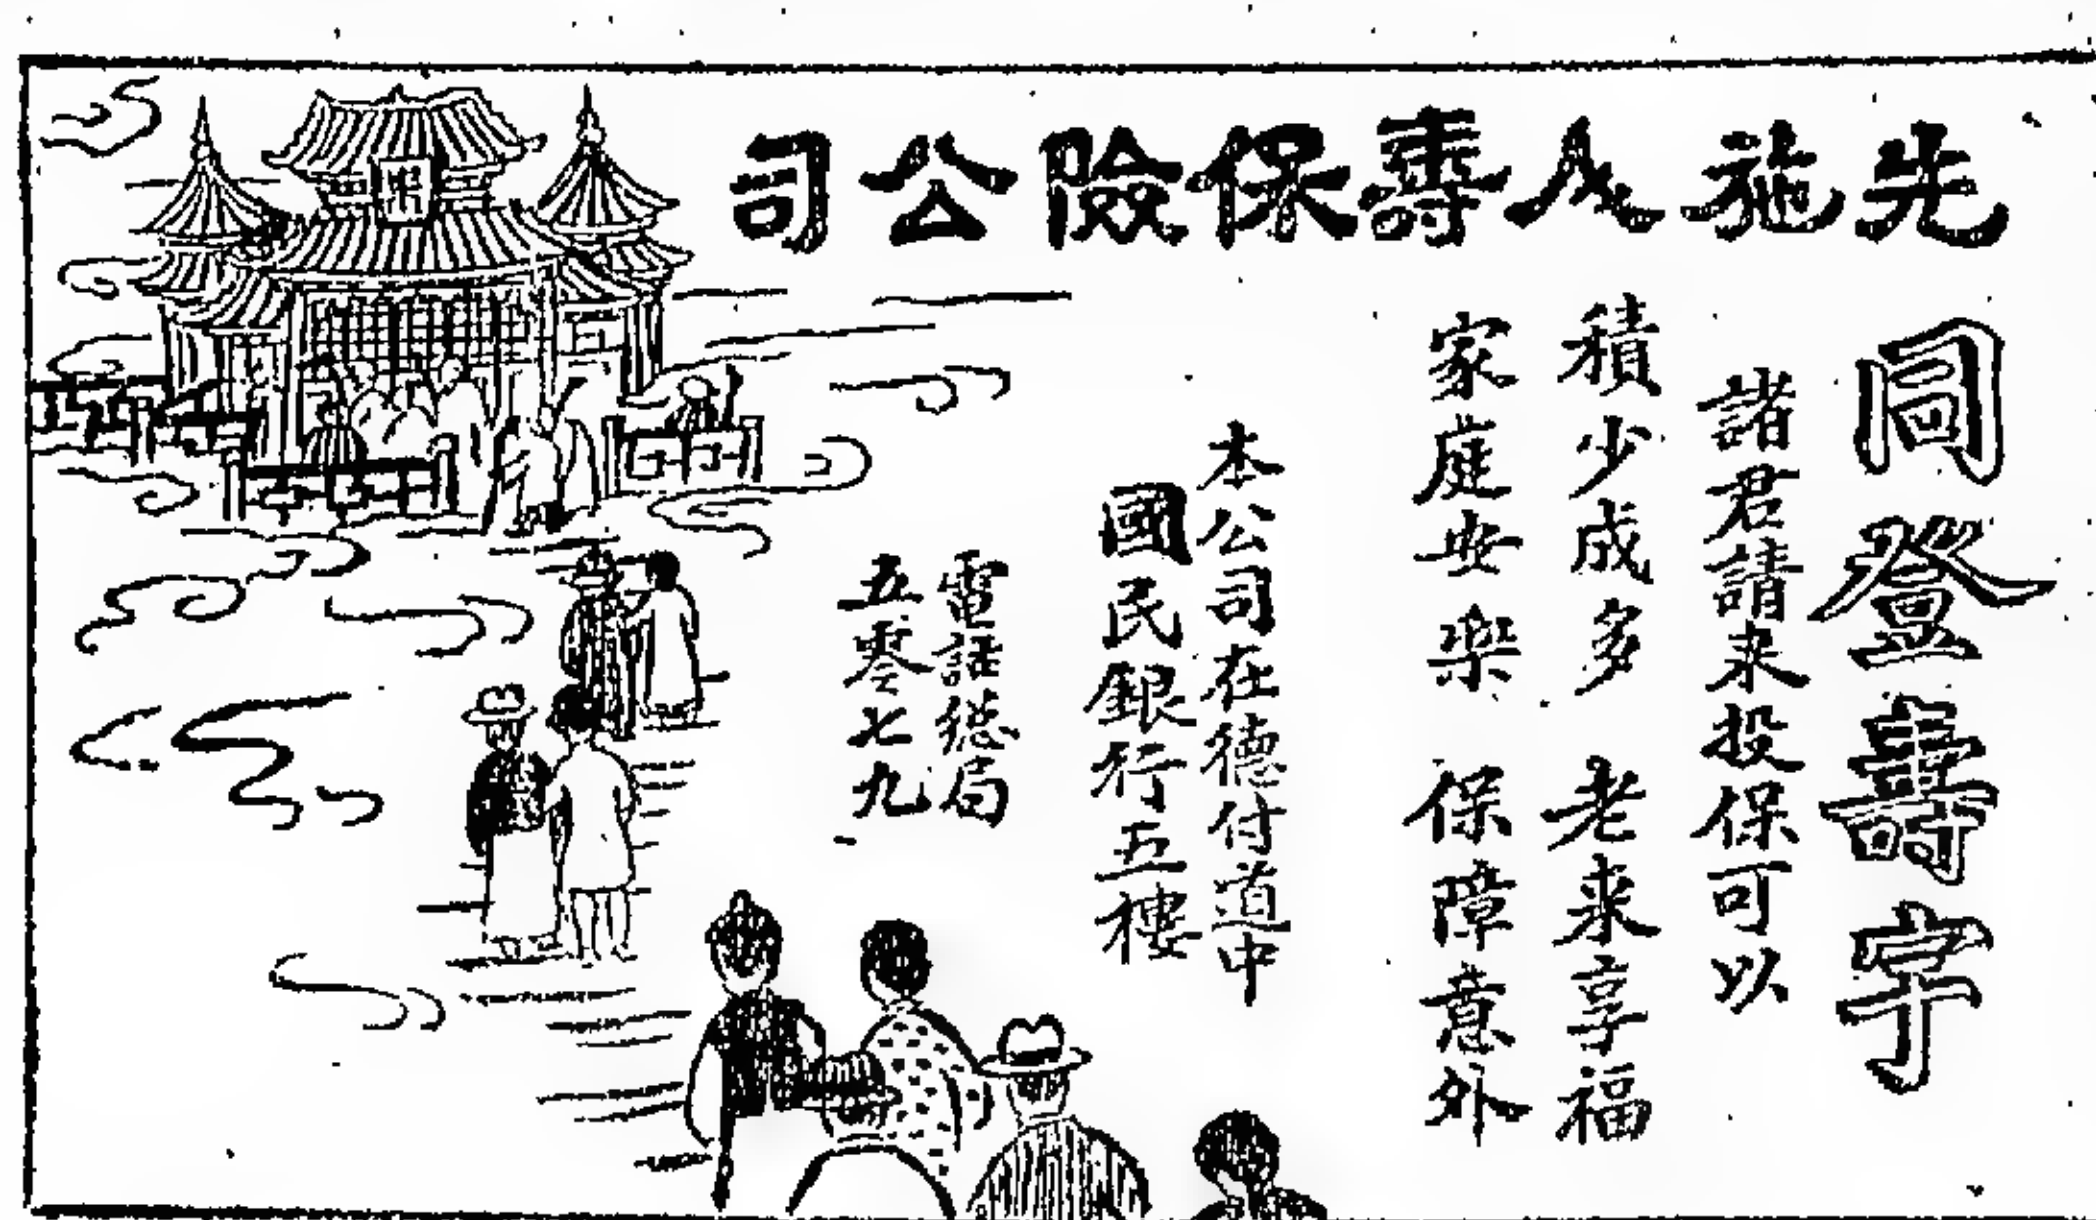 先施人壽保險公司
同登壽字
諸君請来投保可以
積少成多 老来享福
家庭安樂 保障意外
本公司在德付道中
國民銀行五樓
電話總局
五零七九
樂